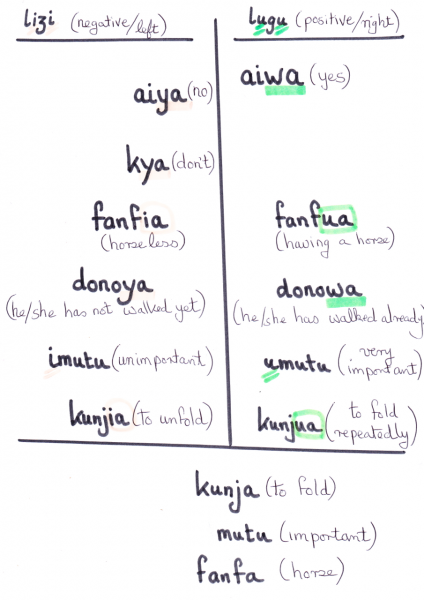 lizi (negative/left) lugu (positive/right)
aiya (no) aiwa (yes)
kya (don't)
fanfia fanfua
(horseless) (having a horse)
donoya donowa
(he/she has not walked yet) (he/she has walked already)
imutu (unimportant) umutu (very important)
kunjia (to unfold) kunjua (to fold repeatedly)
kunja (to fold)
mutu (important)
fanfa (horse)